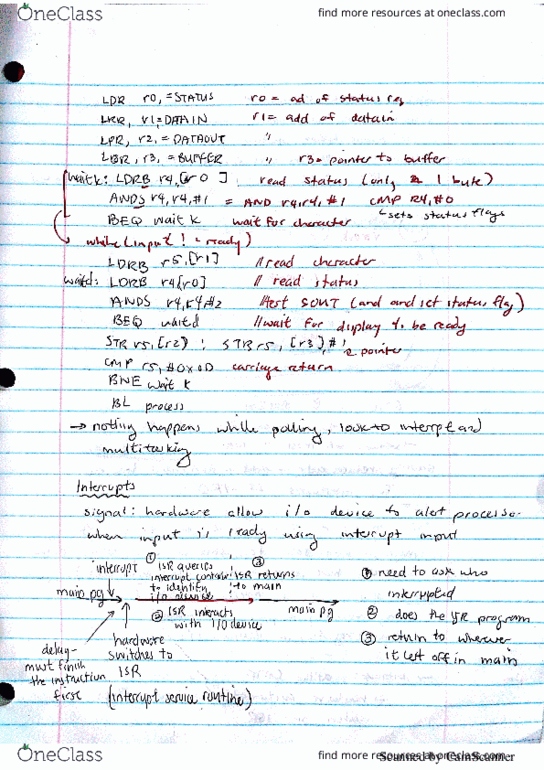 OneClass
find more resources at oneclass.com
LDR r0, =STATUS r0 = ad of status reg
LDR, r1=DATAIN r1= add of datain
LDR, r2, = DATAOUT "
LDR, r3, = BUFFER " r3= pointer to buffer
waitk: LDRB r4,[r0] read status (only 1 byte)
ANDS r4,r4,#1 = AND r4,r4,#1 CMP R4,#0
BEQ wait k wait for character sets status flags
while (input ! = ready)
LDRB r5,[r1] //read character
waitd: LDRB r4[r0] // read status
ANDS r4,r4#2 //test SOUT (and and set status flag)
BEQ waitd //wait for display to be ready
STR r5,[r2] ; STR r5, [r3],#1 pointer
CMP r5,#0x0D carriage return
BNE wait k
BL process
→ nothing happens while polling, look to interrupt and
multitasking
Interrupts
signal: hardware allow i/o device to alert processor
when input is ready using interrupt input
interrupt ① ISR queries interrupt controller to identify i/o device ③ ISR returns to main
① need to ask who interrupted
main pg main pg
② ISR interacts with I/O device
② does the ISR program
③ return to wherever it left off in main
delay- must finish the instruction first
hardware switches to ISR
(interrupt service routine)
OneClass
find more resources at oneclass.com
Scanned by CamScanner